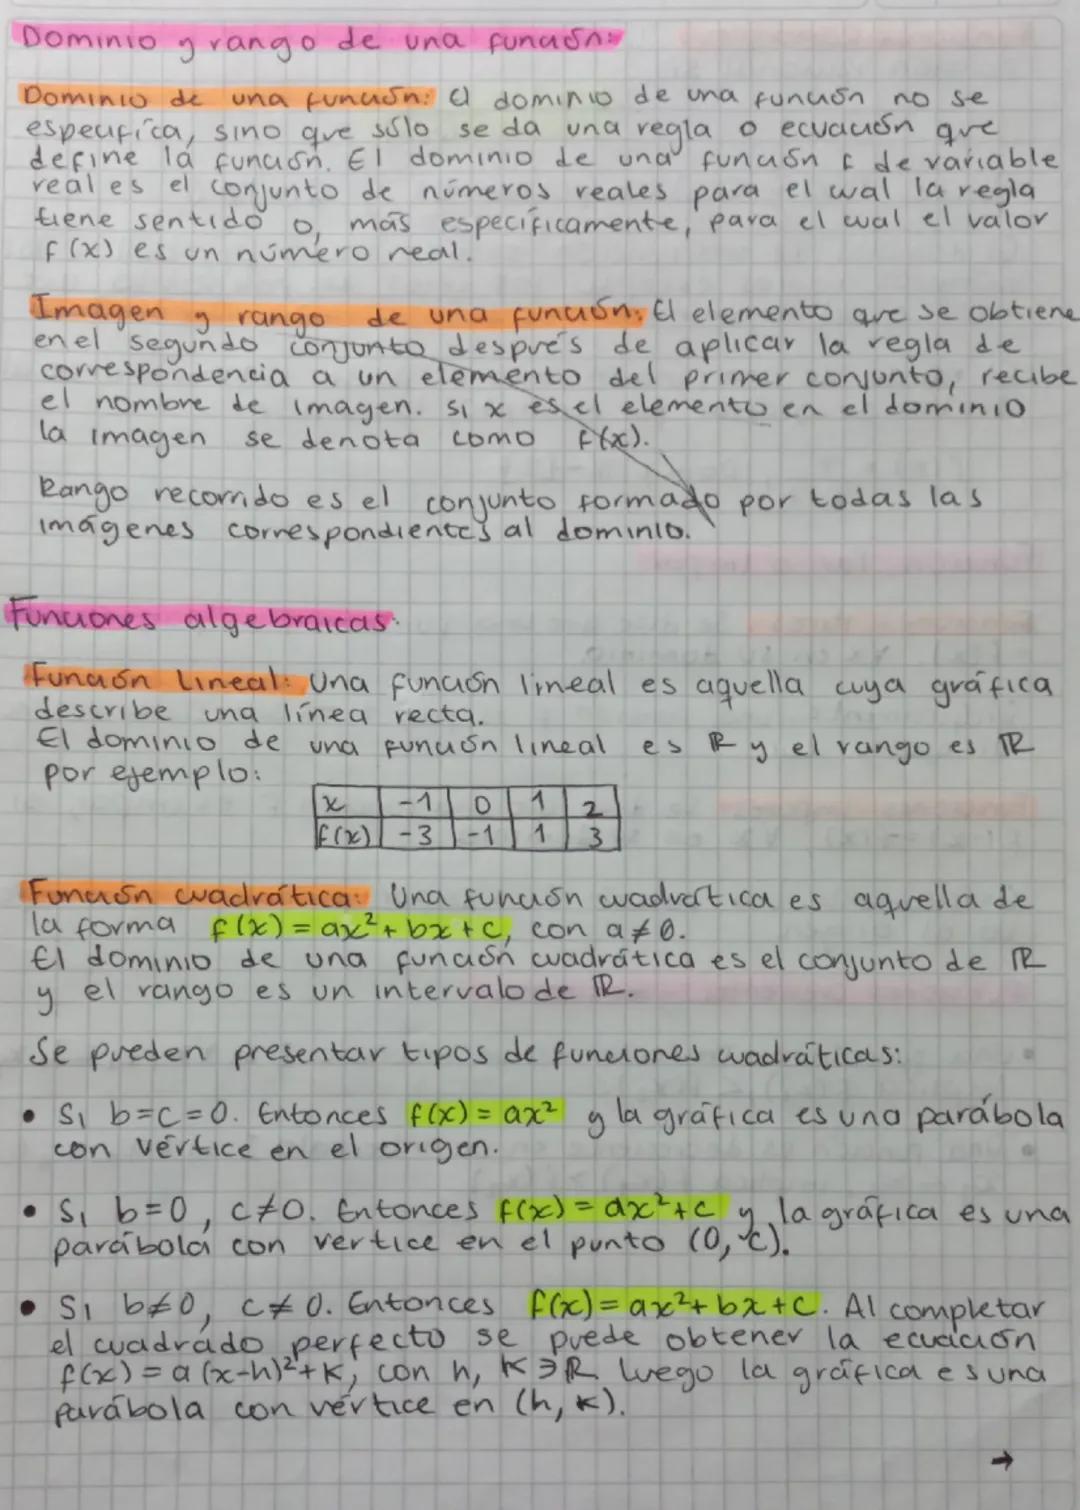 Dominio y rango de una función:
Dominio de una función: El dominio de una función no se
especifica, sino que sólo se da una regla o ecuación que
define la función. El dominio de una función f de variable
real es el conjunto de números reales para el cual la regla
tiene sentido o, más específicamente, para el cual el valor
f(x) es un número real.
Imagen y rango de una función: El elemento que se obtiene
en el segundo conjunto después de aplicar la regla de
correspondencia a un elemento del primer conjunto, recibe
el nombre de imagen. Si x es el elemento en el dominio
la imagen se denota como f(x).
Rango recorrido es el conjunto formado por todas las
imágenes correspondientes al dominio.
Funciones algebraicas:
Función Lineal: Una función lineal es aquella cuya gráfica
describe una línea recta.
El dominio de una función lineal es ℝ y el rango es ℝ
por ejemplo:
x -1 0 1 2
f(x) -3 -1 1 3
Función cuadrática: Una función cuadrática es aquella de
la forma f(x) = ax² + bx + c, con a ≠ 0.
El dominio de una función cuadrática es el conjunto de ℝ
y el rango es un intervalo de ℝ.
Se pueden presentar tipos de funciones cuadráticas:
• Si b=c=0. Entonces f(x) = ax² y la gráfica es una parábola
con vértice en el origen.
• Si b=0, c≠0. Entonces f(x) = ax²+c y la gráfica es una
parábola con vertice en el punto (0, c).
• Si b≠0, c≠0. Entonces f(x) = ax²+bx+c. Al completar
el cuadrado perfecto se puede obtener la ecuación
f(x) = a (x-h)²+k, con h, k ∋ ℝ luego la gráfica es una
parábola con vértice en (h, k).
→